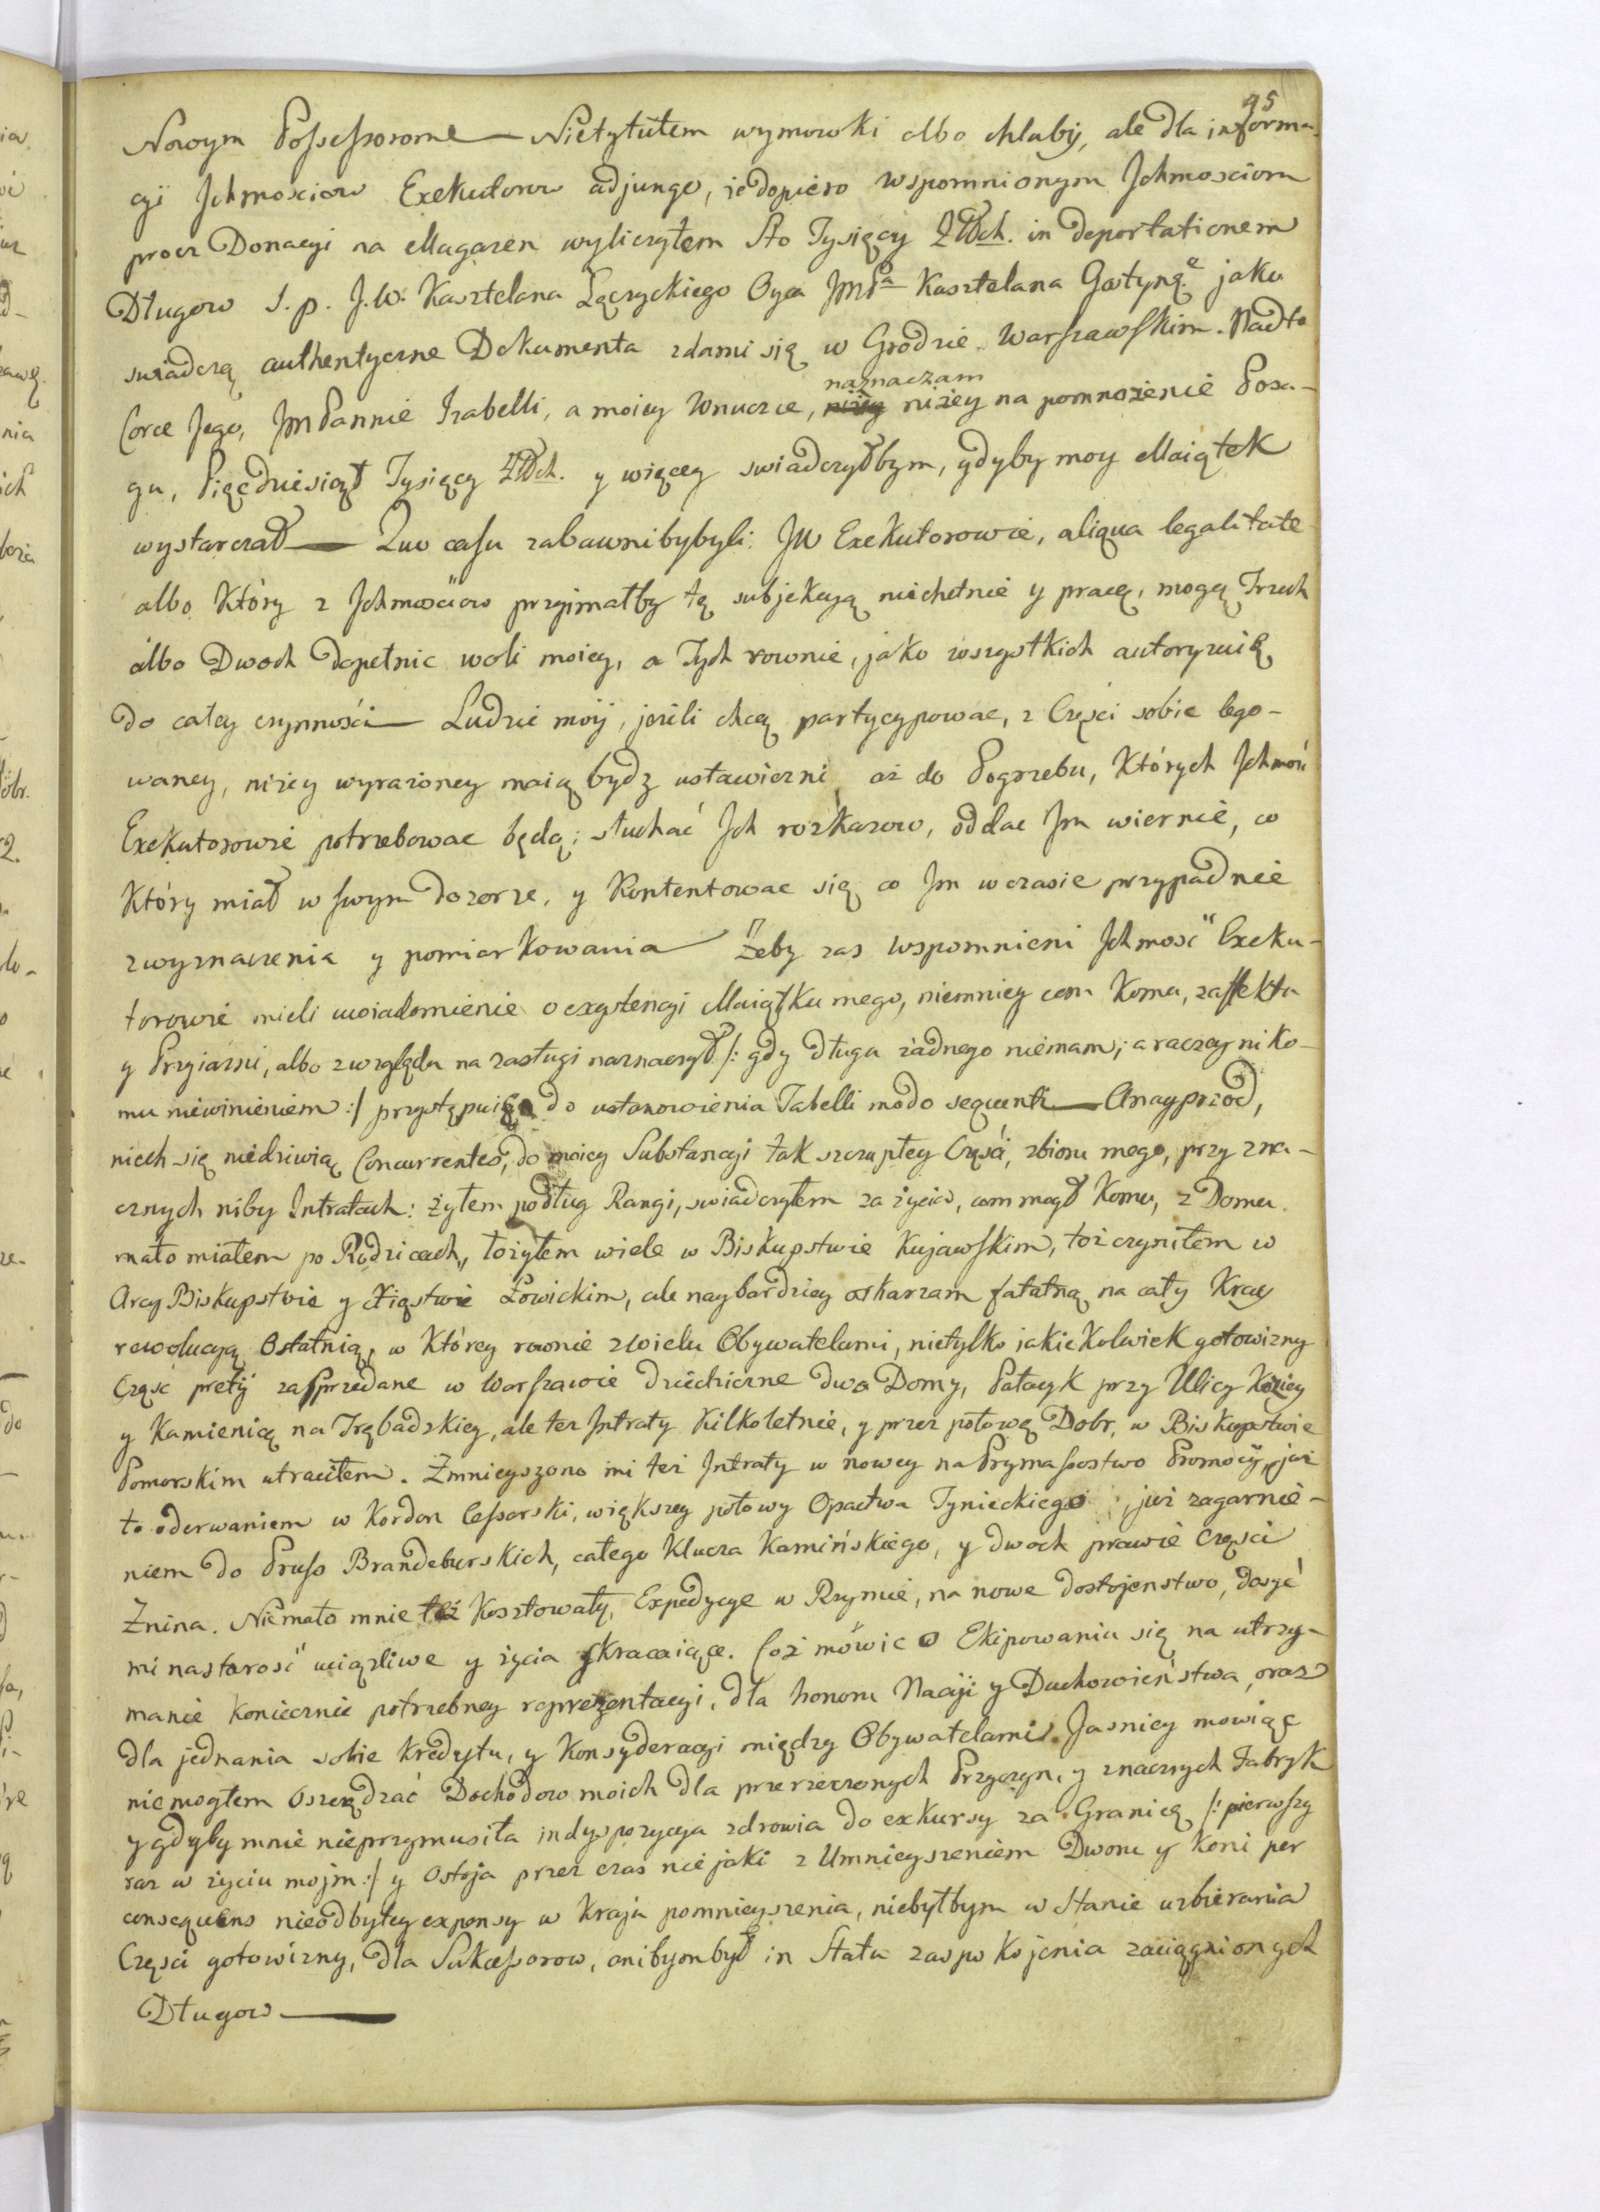 95
Nowym Possessorowie — Nietytułem wymowki albo chluby, ale dla informa-
cyi Jchmosciow Exekutorow adjungo, iż dopiero wspomnionym Jchmosciom
procz Donacyi na Magazen wyliczyłem Sto Tysięcy Złłch. in deportationem
Długow s. p. J.W. Kasztelana Łęczyckiego Oyca JmPa Kasztelana Gostyn. jako
swiadczą authentyczne Dokumenta zdami się w Grodzie Warszawskim. Nadto
Corce Jego, JmPannie Izabelli, a moiey Wnuczce, naznaczam niżey na pomnożenie Posa-
gu, Pięćdziesiąt Tysięcy Złłch. y więcey swiadczyłbym, gdyby moy Maiątek
wystarczał — Quo casu zabawnibybyli JW Exekutorowie, aliqua legalitate
albo Który z Jchmościow przyimałby tę subjekcyą niechętnie y pracę, mogą Trzech
albo Dwoch dopełnic woli moiey, a Tych rownie, jako wszystkich autoryzuię
do całey czynności — Ludzie moij, jeżeli chcą partycypowac, z Części sobie lego-
waney, niżey wyrażoney maią bydz ustawiczni aż do Pogrzebu, Których Jchmość
Exekutorowie potrzebowac będą; słuchać Jch rozkazow, oddac Jm wiernie, co
Który miał w swym dozorze, y Kontentowac się co Jm wczasie przypadnie
zwyznaczenia y pomiarkowania — Żeby zas wspomnieni Jchmość Exeku-
torowie mieli uwiadomienie o exystencyi Maiątku mego, niemniey com Komu, zaffektu
y Przyiazni, albo zwzględu na zasługi naznaczył /: gdy długu żadnego niemam, a raczey niko-
mu niewinienem :/ przystępuię do ustanowienia Tabelli modo sequenti — Anayprzod,
niech się niedziwią Concurrentes, do moiey Substancyi tak szczupłey Części, zbioru mego, przy zna-
cznych niby Intratach: żyłem podług Rangi, swiadczyłem za życia, com mogł Komu, z Domu
mało miałem po Rodzicach, łożyłem wiele w Biskupstwie Kujawskim, toż czyniłem w
Arcy Biskupstwie y Xięstwie Łowickim, ale naybardziey oskarzam fatalną na cały Kray
rewolucyą Ostatnią, w Którey rownie zwielu Obywatelami, nietylko jakieKolwiek gotowizny
Część prętij zasprzedane w Warszawie dziedziczne dwa Domy, Pałacyk przy Ulicy Koziey
y Kamienicę na Trębackiey, ale też Intraty Kilkoletnie, y przez połowę Dobr, w Biskupstwie
Pomorskim utraciłem. Zmnieyszono mi też Intraty w nowey na Prymasostwo Promocij, już
to oderwaniem w Kordon Cesarski, większey połowy Opactwa Tynieckiego, już zagarnie-
niem do Pruss Brandeburskich, całego Klucza Kamińskiego, y dwoch prawie Części
Żnina. Niemało mnie też Kosztowały, Expedycye w Rzymie, na nowe dostojenstwo, dosyć
mi nastarość uciążliwe y życia skracaiące. Coż mówic o Ekipowaniu się na utrzy-
manie Koniecznie potrzebney reprezentacyi, dla honoru Nacyji y Duchowieństwa, oraz
dla jednania sobie Kredytu, y Konsyderacyi między Obywatelami. Jasniey mowiąc
niemogłem Oszczędzać Dochodow moich dla przerzeczonych Przyczyn, y znacznych Fabryk
y gdyby mnie nieprzymusiła indyspozycya zdrowia do exkursy za Granicę /: pierwszy
raz w życiu mojm :/ y Ostoja przez czas niejaki z Umnieyszeniem Dworu y Koni per
consequens nieodbytey expensy w Kraju pomnieyszenia, niebyłbym w Stanie uzbierania
Części gotowizny, dla Sukcessorow, anibymbył in Statu zaspokojenia zaciągnionych
Długow —